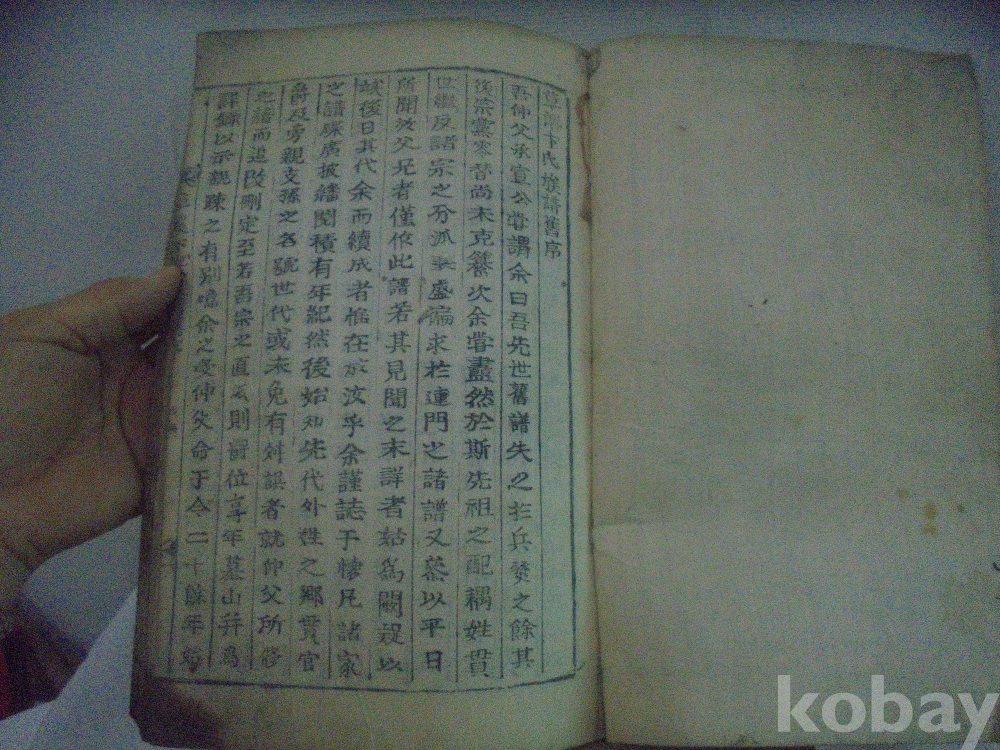 草溪卞氏族譜舊序
吾仲父承宣公嘗謂余曰吾先世舊譜失之於兵燹之餘其
後宗黨寥替尚未克纂次余嘗盡然於斯先祖之配耦姓貫
世繼及諸宗之分派盛遍求於連門之諸譜又參以平日
所聞於父兄者僅修此譜若其見聞之未詳者姑為闕疑以
俟後日其代余而續成者惟在於汝乎余謹誌于懷凡諸家
之譜廣披繙閱積有年紀然後始知先代外姓之鄉貫官
爵及旁親支孫之名號世代或未免有対誤者就仲父所修
之譜而追改刪定至若吾宗之直派則爵位享年墓山并為
詳錄以示親疎之有別噫余之受仲父命于今二十餘年始
kobay